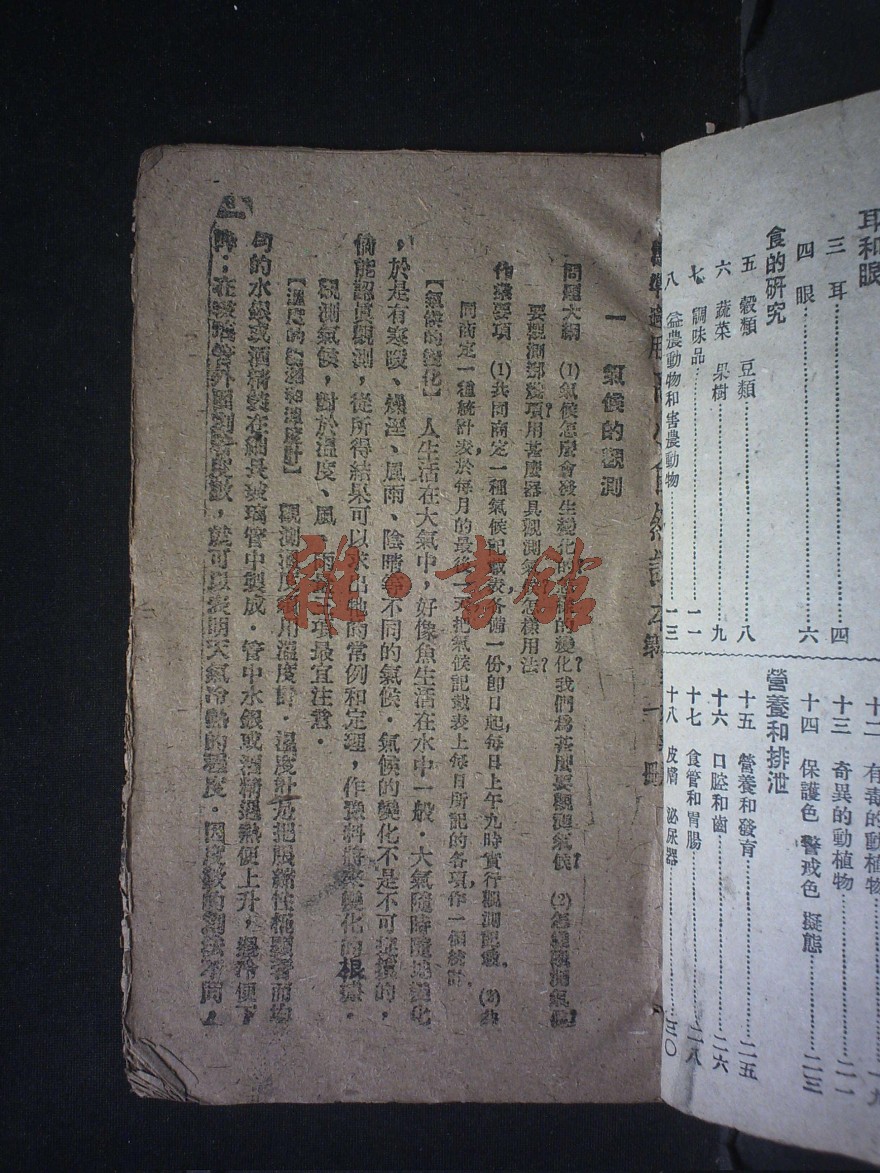 耳和眼
三 耳……四
四 眼……六
食的研究
五 穀類 豆類……八
六 蔬菜 果樹……九
七 調味品……一一
八 益農動物和害農動物……一三
十二 有毒的動植物……一九
十三 奇異的動植物……二一
十四 保護色 警戒色 擬態……二三
營養和排泄
十五 營養和發育……二五
十六 口腔和齒……二六
十七 食管和胃腸……二八
十八 皮膚 泌尿器……三〇
一 氣候的觀測
問題大綱 (1)氣候怎麼會發生變化的?怎樣的變化?我們爲甚麼要觀測氣候? (2)怎樣觀測氣候?
要觀測那幾項?用甚麼器具觀測?氣候怎樣用法?
作業要項 (1)共同商定一種氣候記載表,各備一份,卽日起,每日上午九時實行觀測記載. (2)共
同商定一種統計表,於每月的最後一天,把氣候記載表上每日所記的各項,作一個統計.
【氣候的變化】 人生活在大氣中,好像魚生活在水中一般.大氣隨時隨地變化
,於是有寒暖、燥溼、風雨、陰晴等不同的氣候.氣候的變化不是不可捉摸的,
倘能認眞觀測,從所得結果可以求出牠的常例和定理,作豫料將來變化的根據.
觀測氣候,對於溫度、風、雨量三項最宜注意.
【溫度的觀測和溫度計】 觀測溫度須用溫度計.溫度計是把脹縮性極顯著而均
勻的水銀或酒精裝在細長玻璃管中製成.管中水銀或酒精遇熱便上升,遇冷便下
降;在玻璃管外面刻着度數,就可以表明天氣冷熱的程度.因度數的刻法不同,
雜·書館